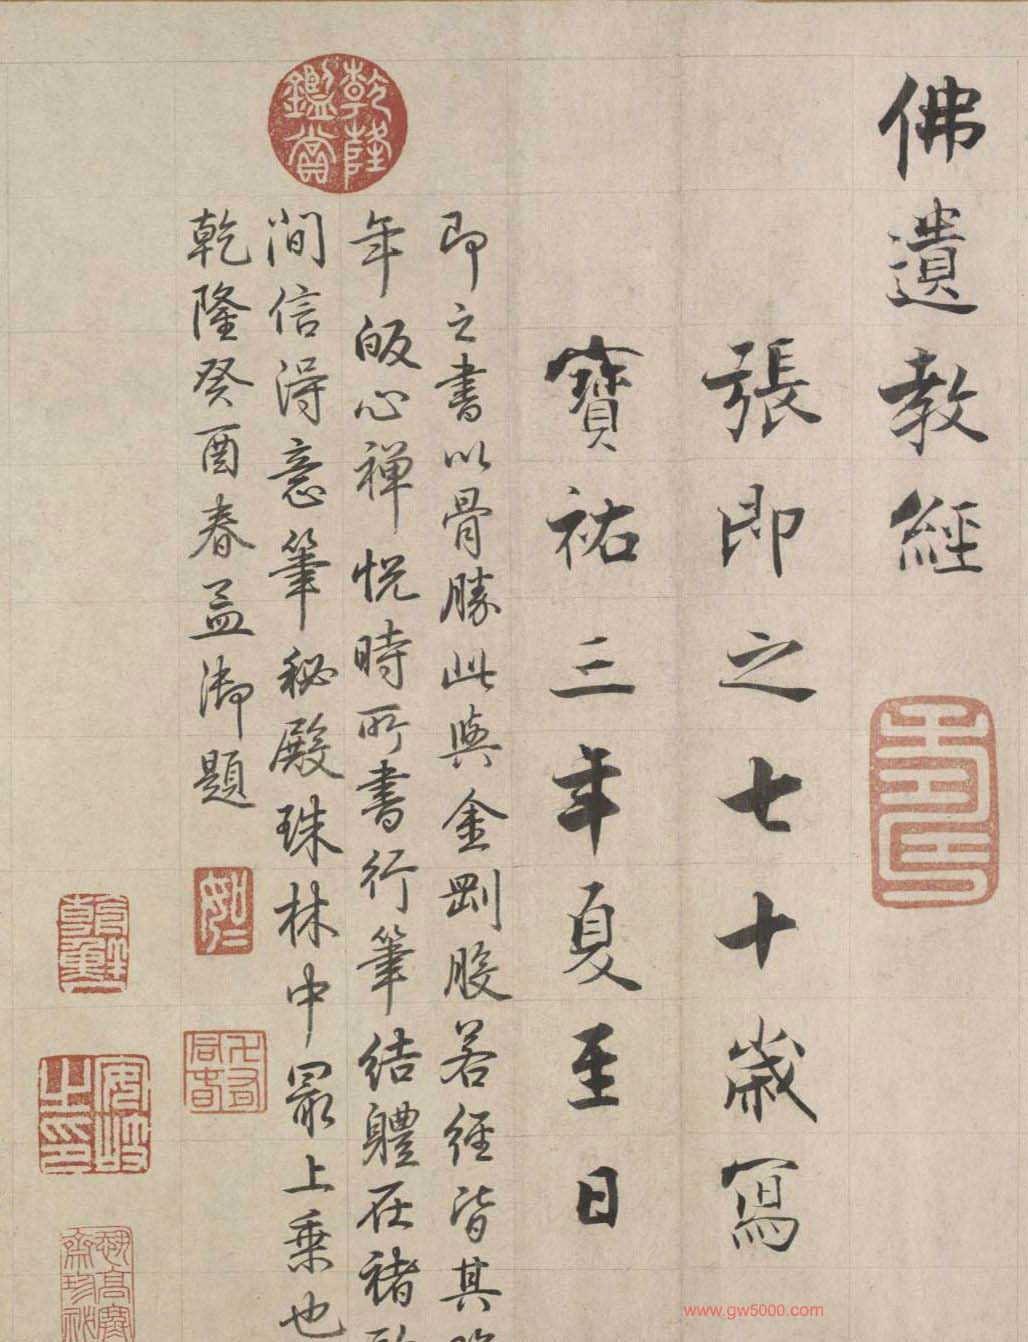 佛遺教經
張即之七十歲寫
寶祐三年夏至日
即之書以骨勝此與金剛般若經皆其
年皈心禪悅時所書行筆結體在褚
間信得意筆秘殿珠林中最上乘也
乾隆癸酉春孟御題
乾隆鑑賞
安岐之印
www.gw5000.com